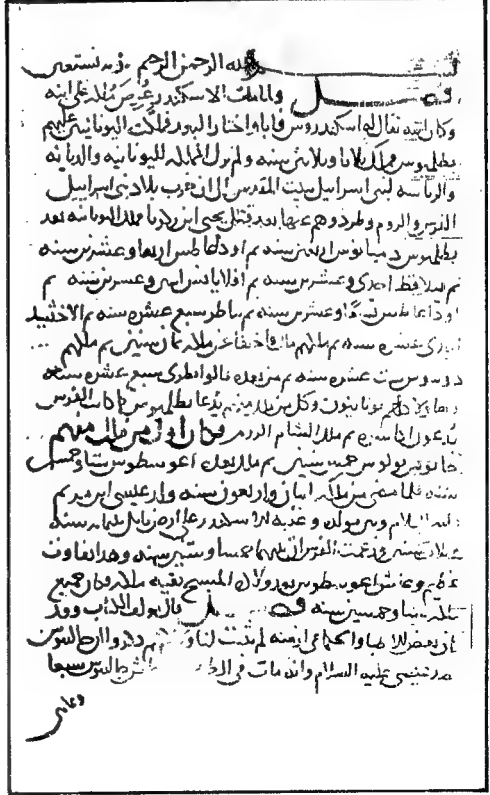 بسم الله الرحمن الرحيم وبه نستعين
فصل ولما مات الاسكندر عرض الملك على ابنه
وكان ابنه يقال له اسكندروس فابا واختار العبد فملكت اليونانيين عليهم
بطلميوس فملك ثمانيا وثلاثين سنه ولم تزل المملكه لليونانيه والديانه
والرياسه لبني اسراييل ببيت المقدس الى ان خرب بلاد بني اسراييل
الفرس والروم وطردوهم عنها بعد قتل يحيى ابن زكريا ملك اليونانيه بعد
بطلميوس دميانوس اربعين سنه ثم اوداغاطس اربعا وعشرين سنه
ثم فيلافظر احدى وعشرين سنه ثم افلابانس اثنين وعشرين سنه ثم
اوداغاطس تسعا وعشرين سنه ثم ساطر سبع عشره سنه ثم الاخشيد
احدى عشره سنه ثم ملكهم ملك واختفا عن ملكه ثمان سنين ثم ملكهم
دونوس ست عشره سنه ثم من بعده قالوبطرى سبع عشره سنه
وهاولا كلهم يونانيون وكل من ملك منهم يدعا بطلميوس كما كانت الفرس
يدعون اكاسره ثم ملك الشام الروم فكان اول من ملك منهم
جايوس يوليوس خمس سنين ثم ملك بعده اغوسطوس ستا وخمسين
سنه فلما مضى من ملكه اثنان واربعون سنه ولد عيسى ابن مريم
عليه السلام وبين مولده وغلبه الاسكندر على ارض بابل ثلثمايه سنه
وثلاث سنين وزعمت الفرس ان بينهما خمسا وستين سنه وهذا تفاوت
عظيم وعاش اغوسطوس بعد ولاد المسيح بقيه ملكه فكان جميع
ملكه ستا وخمسين سنه فصل قال مولف الكتاب وقد
كان بعض الاطبا والحكما في ازمنه لم تثبت لنا وذكروا ان جالينوس
بعد عيسى عليه السلام وانه مات في جالينوس سبعا
وثماني